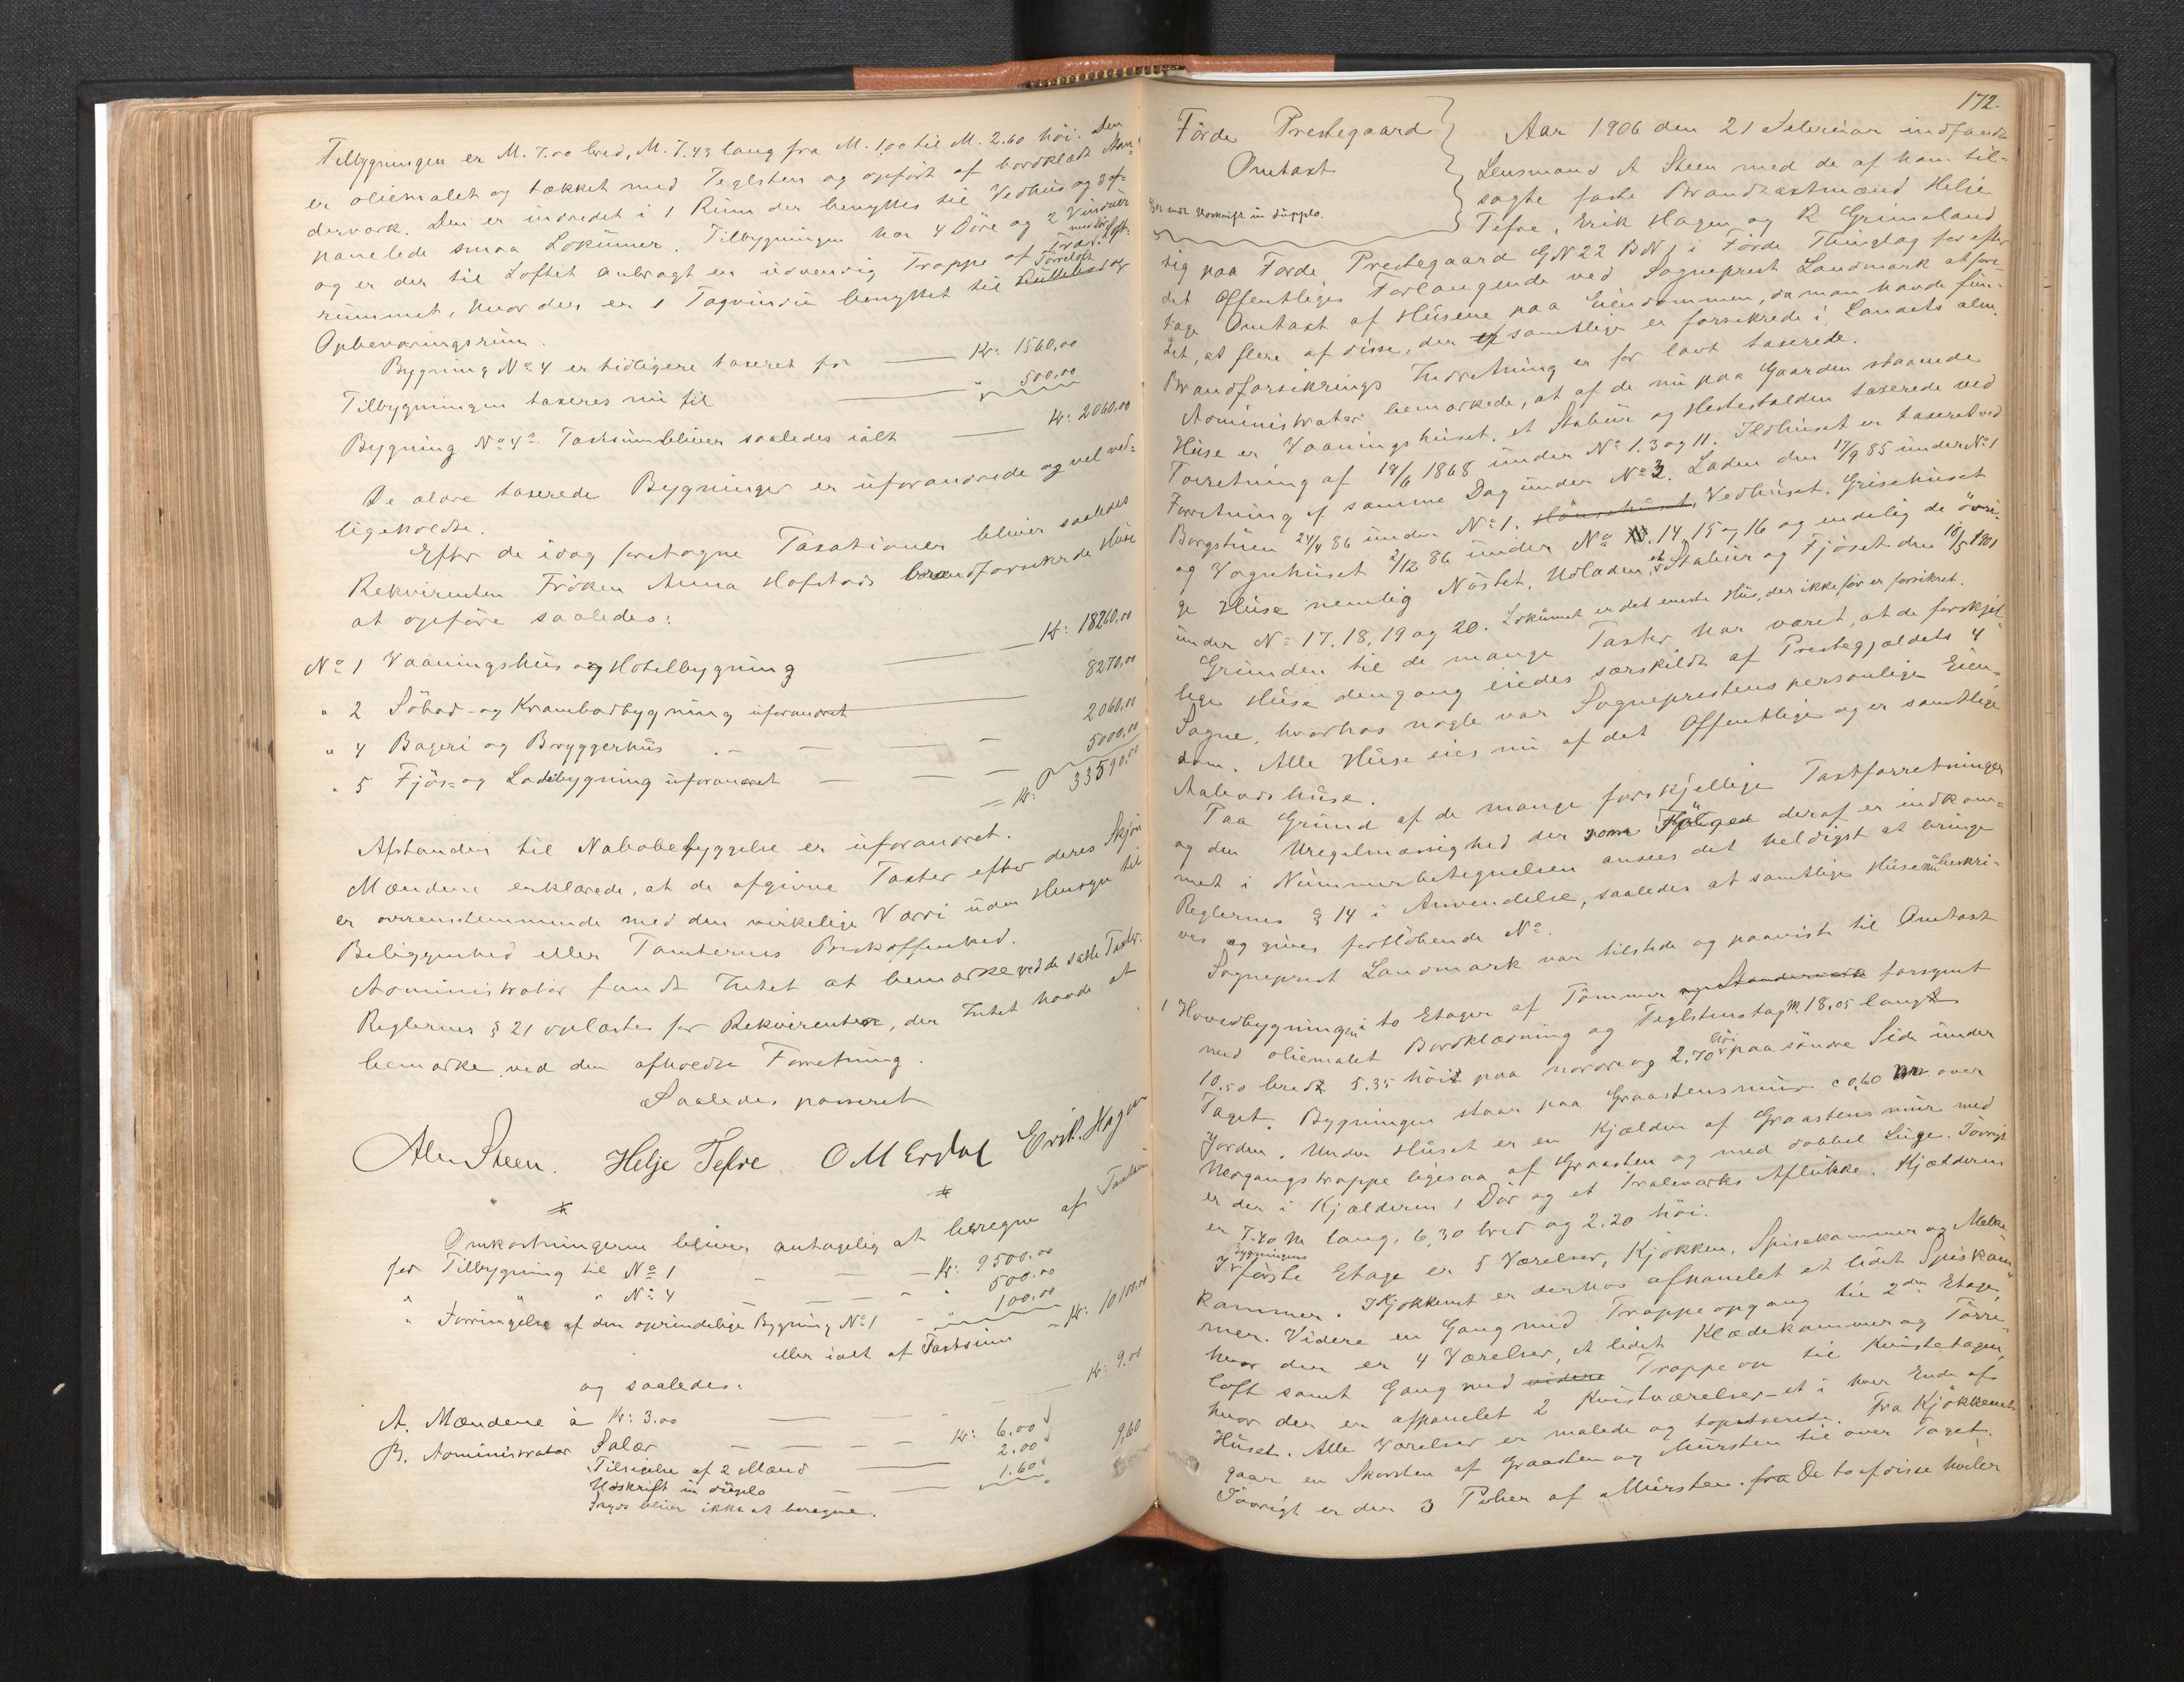 Tilbygningen er M. 7.00 bred, M. 7.43 lang fra M. 1,00 til M. 2.60 höi. Den
er oliemalet og tækket med Teglsten og opfört af bordklædt Stan-
derværk. Den er indredet i 1 Rum der benyttes til Vedhus og 3 af-
panelede smaa Lokümer. Tilbygningen har 4 Döre og 2 Vinduer
og er der til Loftet anbragt en udvendig Trappe af Træ.
rummet, hvor der er 1 Tagvindu benyttet til Törreloft og
Opbevaringsrum.
Bygning No 4 er tidligere taxeret for — Kr: 1560,00
Tilbygningen taxeres nu til — " 500.00
Bygning No 4s Taxtsum bliver saaledes ialt — Kr: 2060,00
De ældre taxerede Bygninger er uforandrede og vel ved-
ligeholdte.
Efter de idag foretagne Taxationer bliver saaledes
Rekvirenten Fröken Anna Hafstads brandforsikrede Huse
at opföre saaledes:
No 1 Vaaningshus og Hotelbygning — Kr: 18260,00
" 2 Söbod- og Krambodbygning uforandret — 8270,00
" 4 Bageri og Bryggerhus — 2060,00
" 5 Fjös- og Ladebygning uforandret — 5000,00
— Kr: 33590,00
Afstanden til Nabobebyggelse er uforandret.
Mændene erklærede, at de afgivne Taxter efter deres Skjön
er overensstemmende med den virkelige Værdi uden Hensyn til
Beliggenhed eller Tomternes Beskaffenhed.
Administrator fandt Intet at bemærke ved de satte Taxter.
Reglernes § 21 oplæstes for Rekvirenten, der Intet havde at
bemærke ved den afholdte Forretning.
Saaledes passeret
Alb Steen. Helje Tefre. O M Erdal Erik. Hagen
Omkostningerne bliver antagelig at beregne af Taxten
for Tilbygning til No 1 — Kr: 9500.00
" " " No 4 — " 500.00
" Forringelse af den oprindelige Bygning No 1 " 100.00
eller ialt af Taxtsum — Kr: 10100,00
og saaledes:
A. Mændene à Kr: 3.00 — Kr: 9.00
B. Administrator Salær — Kr: 6.00
Tilsigelse af 2 Mænd — 2.00 9,60
Udskrift in duplo — 1.60
Skyds bliver ikke at beregne.
172.
Förde Prestegaard
Omtaxt
Udskrift in duplo.
Aar 1906 den 21 Februar indfandt
Lensmand A Steen med de af ham til-
sagte faste Brandtaxtmænd Helje
Tefre, Erik Hagen og R Grimeland
sig paa Förde Prestegaard GN 22 BN 1 i Förde Thinglag for efter
det Offentliges Forlangende ved Sogneprest Landmark at fore-
tage Omtaxt af Husene paa Eiendommen, da man havde fun-
det, at flere af disse, der samtlige er forsikrede i Landets alm.
Brandforsikrings Indretning er for lavt taxerede.
Administrator bemærkede, at af de nu paa Gaarden staaende
Huse er Vaaningshuset, et Stabur og Hestestalden taxerede ved
Forretning af 19/6 1868 under No 1. 3 og 11. Ildhuset er taxeret ved
Forretning af samme Dag under No 3. Laden den 17/9 85 under No 1
Borgstuen 24/4 86 under No 1. Hönsehuset, Vedhuset. Grisehuset
og Vognhuset 2/12 86 under No 14, 15 og 16 og endelig de övri-
ge Huse nemlig Nöstet, Udladen, et Stabur og Fjöset den 10/5 1901
under No 17. 18, 19 og 20. Lokümet er det eneste Hus, der ikke för er forsikret.
Grunden til de mange Taxter har været, at de forskjel-
lige Huse dengang eiedes særskildt af Prestegjældets 4
Sogne, hvorhos nogle var Sogneprestens personlige Eien-
dom. Alle Huse eies nu af det Offentlige og er samtlige
Aabodshuse.
Paa Grund af de mange forskjellige Taxtforretninger
og den Uregelmæssighed der som Fölge deraf er indkom-
met i Nummerbetegnelsen ansees det heldigst at bringe
Reglernes § 14 i Anvendelse, saaledes at samtlige Huse nu beskri-
ves og gives fortlöbende No.
Sogneprest Landmark var tilstede og paaviste til Omtaxt
1 Hovedbygningen i to Etager af Tömmer og Standerværk forsynet
med oliemalet Bordklædning og Teglstenstag M. 18.05 langt
10.50 bredt 5.35 höit paa nordre og 2.70 höi paa söndre Side under
Taget. Bygningen staar paa Graastensmur c 0,60 m over
Jorden. Under Huset er en Kjælder af Graastensmur med
Nedgangstrappe ligesaa af Graasten og med dobbel Luge. Iövrigt
er der i Kjælderen 1 Dör og et Tralværks Aflukke. Kjælderen
er 7.40 m lang, 6.30 bred og 2.20 höi.
I Bygningens förste Etage er 5 Værelser, Kjökken, Spisekammer og Melke-
kammer. I Kjökkenet er derhos afpanelet et lidet Spiskam-
mer. Videre en Gang med Trappeopgang til 2den Etage,
hvor der er 4 Værelser, et lidet Klædekammer og Törre-
loft samt Gang med videre Trappe op til Kvistetagen,
hvor der er afpanelet 2 Kvistværelser – et i hver Ende af
Huset. Alle Værelser er malede og tapetserede. Fra Kjökkenet
gaar en Skorsten af Graasten og Mursten til over Taget.
Iövrigt er der 3 Piber af Mursten. fra De to af disse hviler